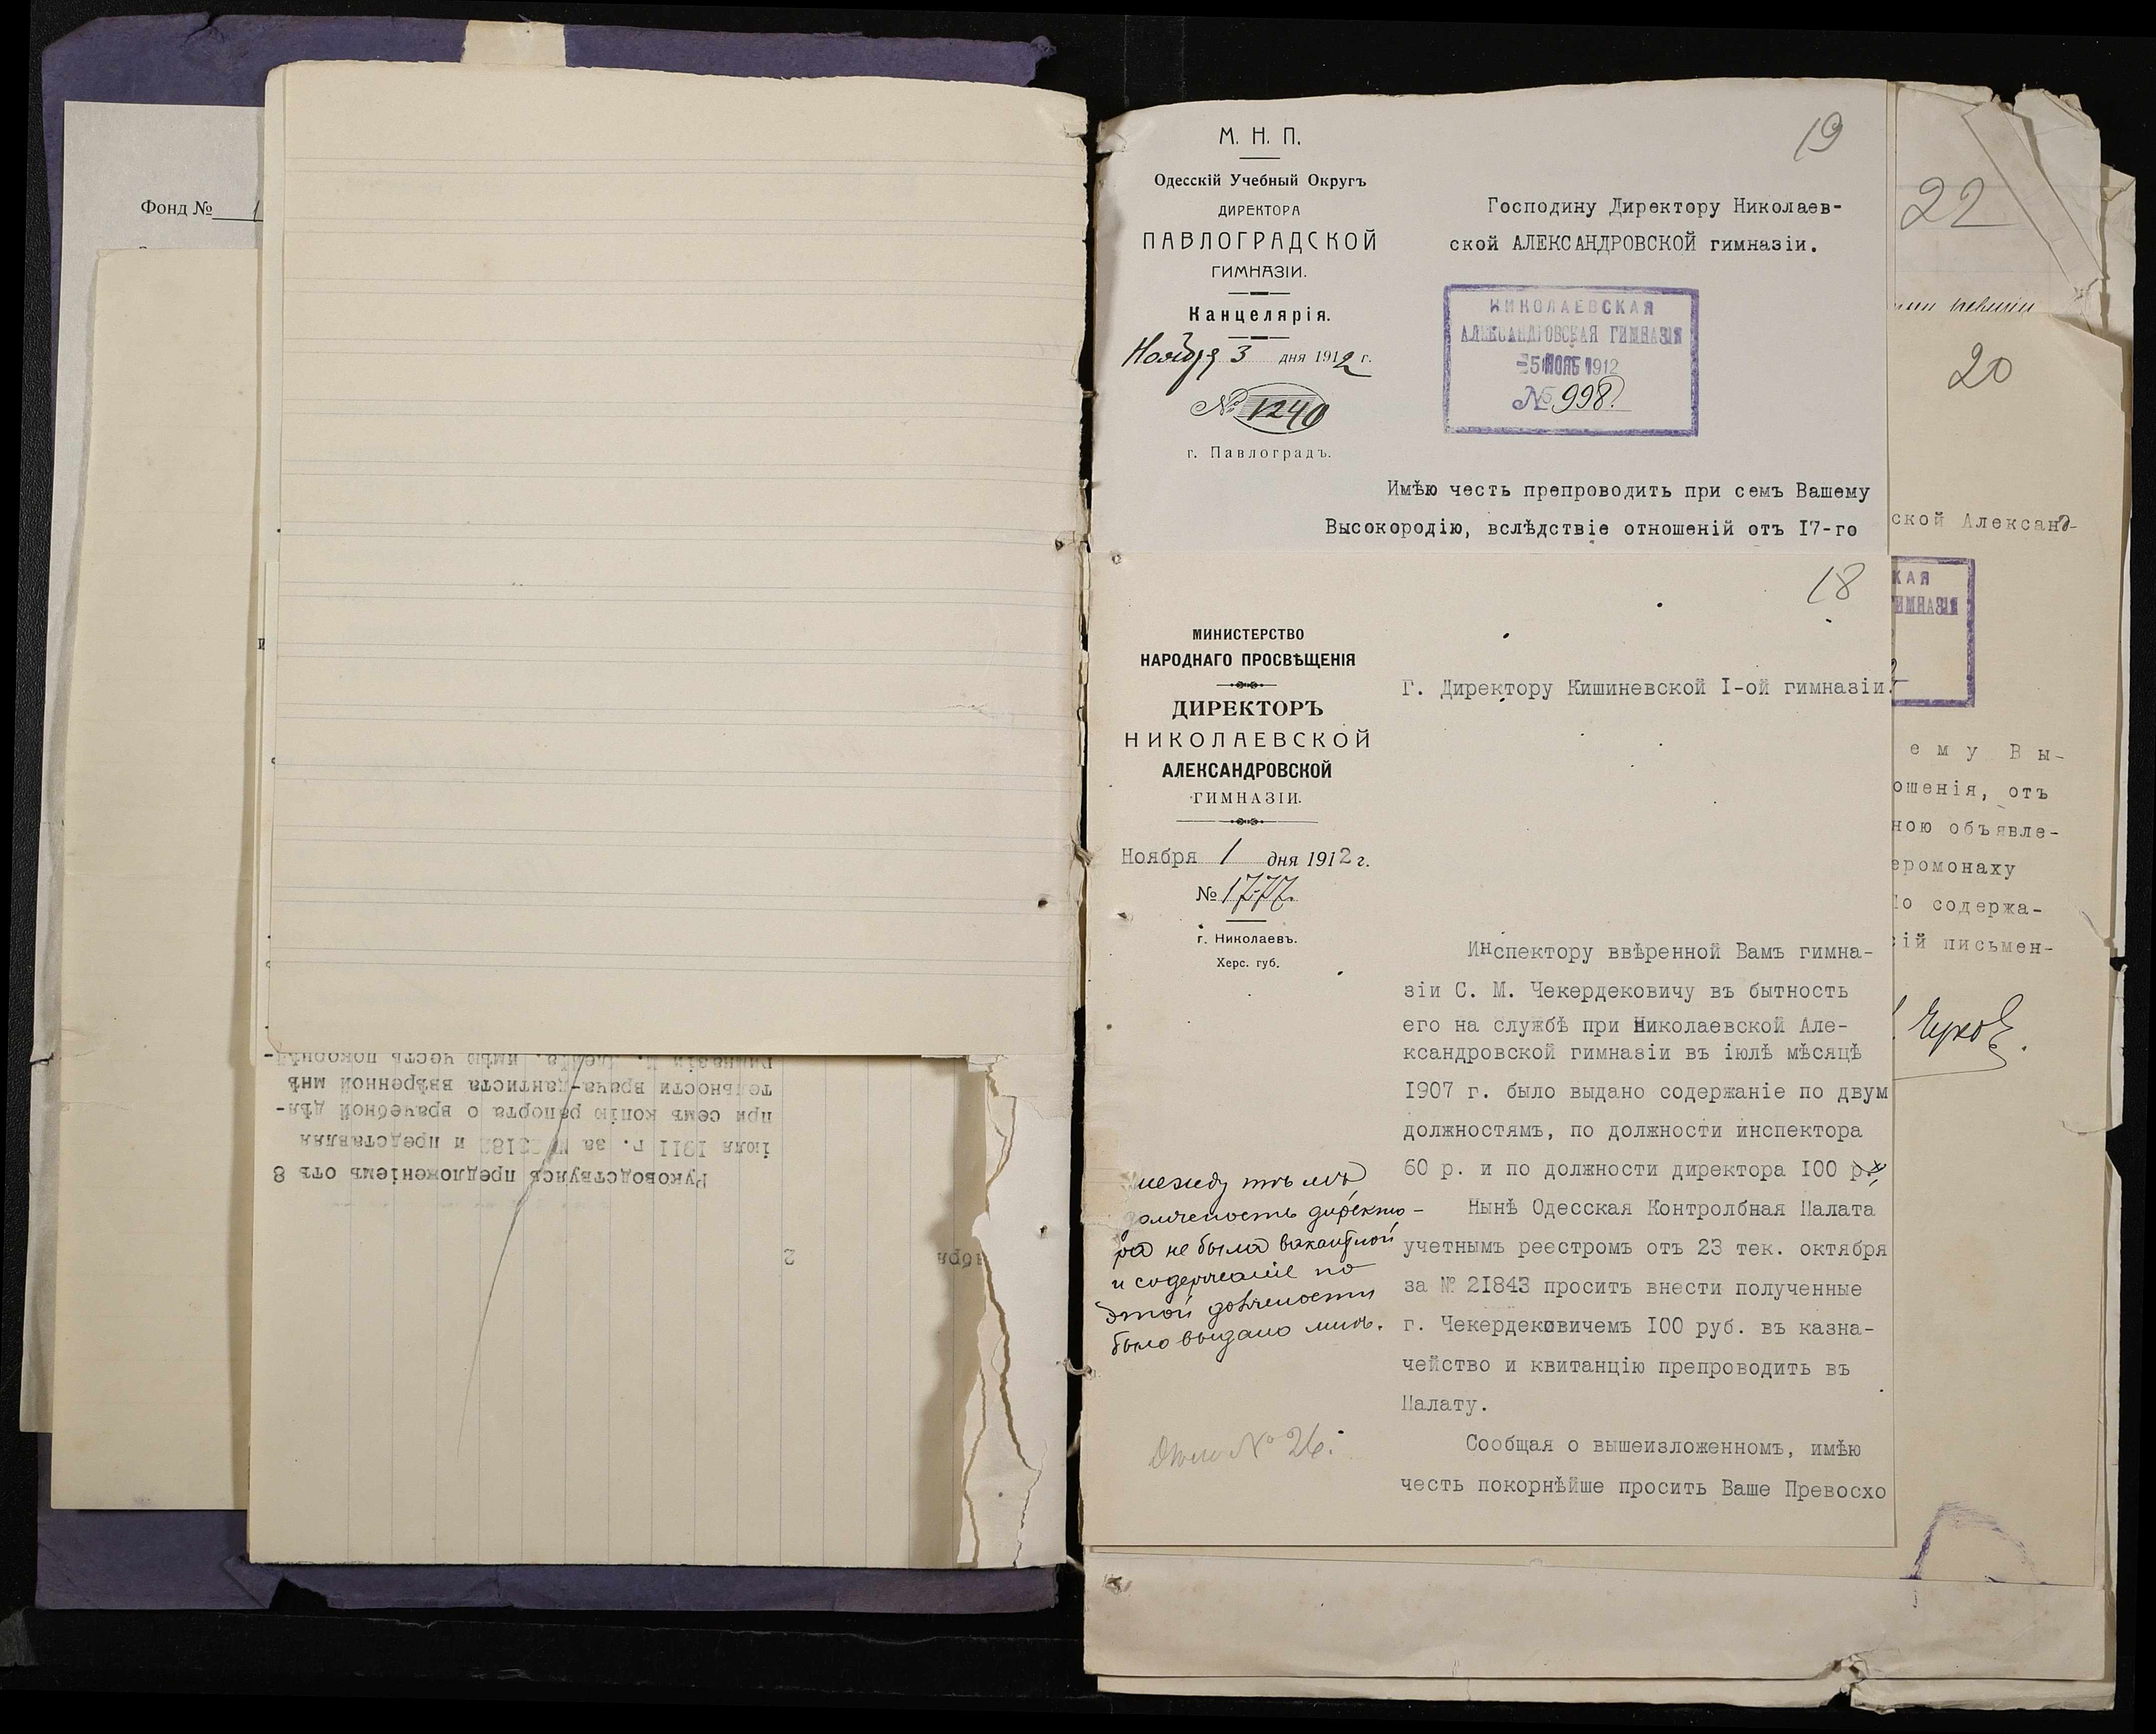 Фонд № 1
М. Н. П.
Одесскій Учебный Округъ
ДИРЕКТОРА
ПАВЛОГРАДСКОЙ
ГИМНАЗІИ.
Канцелярія.
Ноября 3 дня 1912 г.
№ 1240
г. Павлоградъ.
19
Господину Директору Николаев-
ской АЛЕКСАНДРОВСКОЙ гимназіи.
НИКОЛАЕВСКАЯ
АЛЕКСАНДРОВСКАЯ ГИМНАЗІЯ
-5 НОЯБ 1912
№ 998
Имѣю честь препроводить при семъ Вашему
Высокородію, вслѣдствіе отношеній отъ I7-го
18
МИНИСТЕРСТВО
НАРОДНАГО ПРОСВѢЩЕНІЯ
ДИРЕКТОРЪ
НИКОЛАЕВСКОЙ
АЛЕКСАНДРОВСКОЙ
ГИМНАЗІИ.
Ноября 1 дня 1912 г.
№ 1777.
г. Николаевъ.
Херс. губ.
Г. Директору Кишиневской I-ой гимназіи.
Инспектору ввѣренной Вамъ гимна-
зіи С. М. Чекердековичу въ бытность
его на службѣ при Николаевской Але-
ксандровской гимназіи въ іюлѣ мѣсяцѣ
I907 г. было выдано содержаніе по двум
должностямъ, по должности инспектора
60 р. и по должности директора I00 р.,
между тѣмъ
должность директо-
ра не была вакантной
и содержаніе по
этой должности
было выдано мнѣ.
Нынѣ Одесская Контролбная Палата
учетнымъ реестромъ отъ 23 тек. октября
за № 2I843 проситъ внести полученные
г. Чекердековичемъ I00 руб. въ казна-
чейство и квитанцію препроводить въ
Палату.
Сообщая о вышеизложенномъ, имѣю
честь покорнѣйше просить Ваше Превосхо
Дѣло № 26.
22
20
ской Александ-
КАЯ
ИМНАЗІЯ
ему Вы-
ошенія, отъ
ною объявле-
еромонаху
о содержа-
сій письмен-
Руководствуясь предложеніемъ отъ 8
іюля I9II г. за № 23I82 и представляя
при семъ копію рапорта о врачебной дѣя-
тельности врача-дантиста ввѣренной мнѣ
имѣю честь покорнѣй-
2
ября